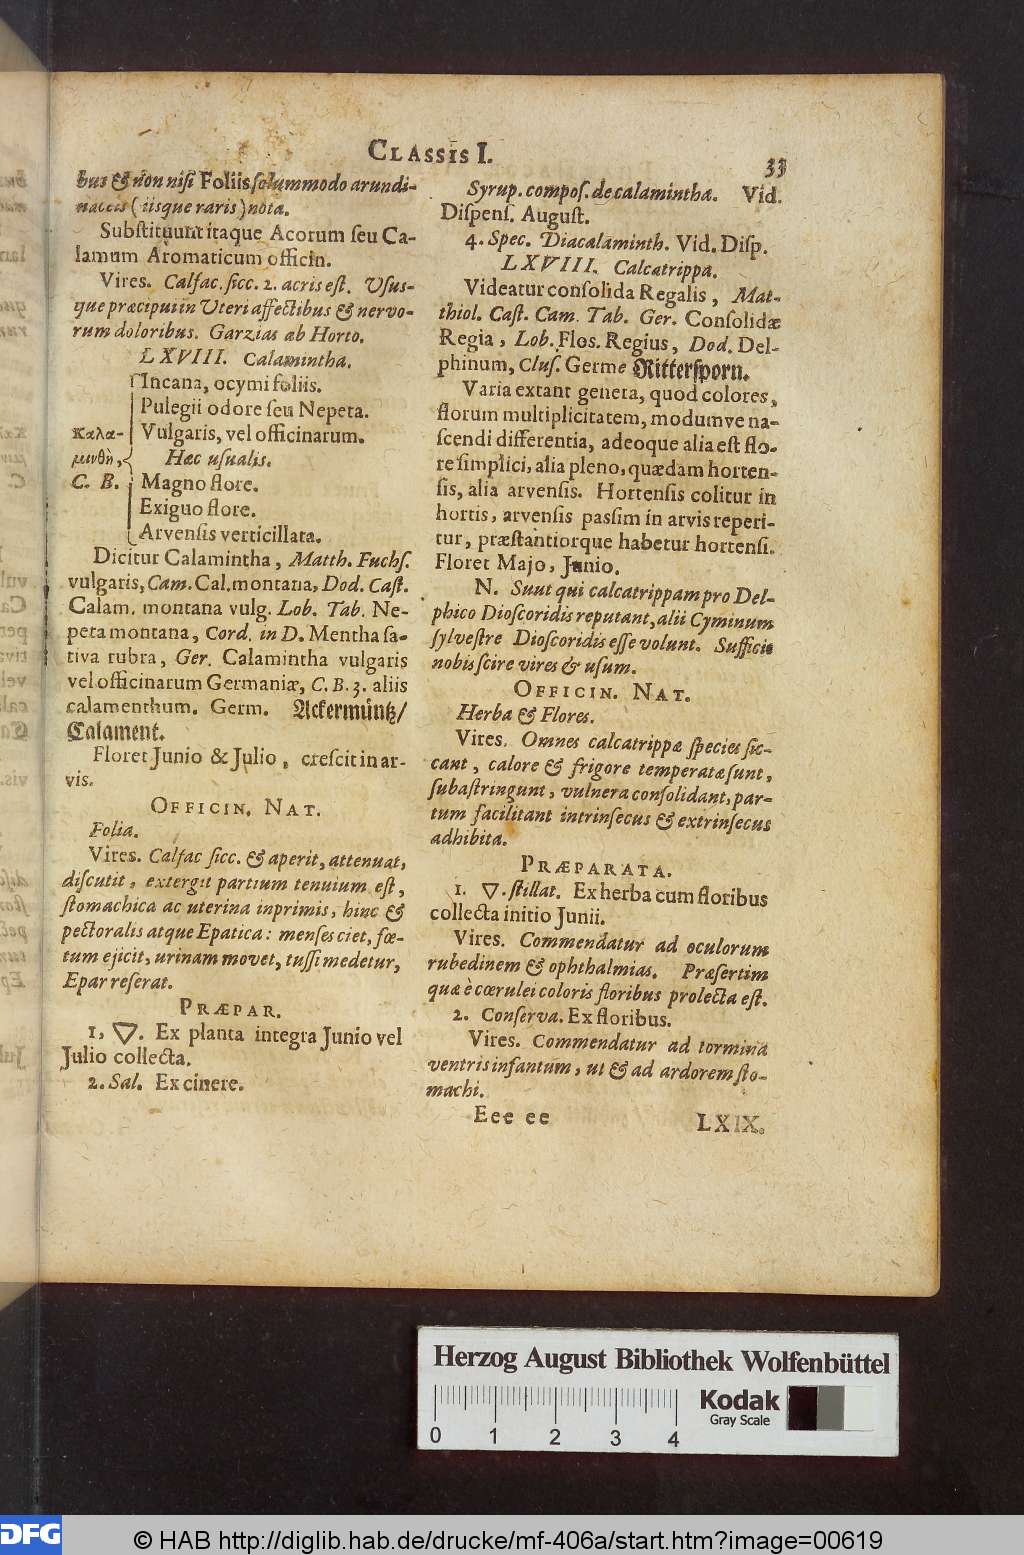 CLASSIS I.
33
bus & non nisi Foliis solummodo arundi-
naceis (iisque raris) nota.
Substituunt itaque Acorum seu Ca-
lamum Aromaticum officin.
Vires. Calfac. sicc. 2. acris est. Usus-
que præcipui in Uteri affectibus & nervo-
rum doloribus. Garzias ab Horto.
LXVIII. Calamintha.
Incana, ocymi foliis.
Pulegii odore seu Nepeta.
Καλα- Vulgaris, vel officinarum.
μινθη, Hæc usualis.
C. B. Magno flore.
Exiguo flore.
Arvensis verticillata.
Dicitur Calamintha, Matth. Fuchs.
vulgaris, Cam. Cal. montana, Dod. Cast.
Calam. montana vulg. Lob. Tab. Ne-
peta montana, Cord. in D. Mentha sa-
tiva rubra, Ger. Calamintha vulgaris
vel officinarum Germaniæ, C. B. 3. aliis
calamenthum. Germ. Ackermüntz/
Calament.
Floret Junio & Julio, crescit in ar-
vis.
OFFICIN. NAT.
Folia.
Vires. Calfac sicc. & aperit, attenuat,
discutit, extergit partium tenuium est,
stomachica ac uterina inprimis, hinc &
pectoralis atque Epatica: menses ciet, fœ-
tum ejicit, urinam movet, tussi medetur,
Epar reserat.
PRÆPAR.
1, ▽. Ex planta integra Junio vel
Julio collecta.
2. Sal. Ex cinere.
Syrup. compos. de calamintha. Vid.
Dispens. August.
4. Spec. Diacalaminth. Vid. Disp.
LXVIII. Calcatrippa.
Videatur consolida Regalis, Mat-
thiol. Cast. Cam. Tab. Ger. Consolidæ
Regia, Lob. Flos. Regius, Dod. Del-
phinum, Clus. Germe Rittersporn.
Varia extant genera, quod colores,
florum multiplicitatem, modumve na-
scendi differentia, adeoque alia est flo-
re simplici, alia pleno, quædam horten-
sis, alia arvensis. Hortensis colitur in
hortis, arvensis passim in arvis reperi-
tur, præstantiorque habetur hortensi.
Floret Majo, Junio.
N. Suut qui calcatrippam pro Del-
phico Dioscoridis reputant, alii Cyminum
sylvestre Dioscoridis esse volunt. Sufficit
nobis scire vires & usum.
OFFICIN. NAT.
Herba & Flores.
Vires. Omnes calcatrippæ species sic-
cant, calore & frigore temperatæ sunt,
subastringunt, vulnera consolidant, par-
tum facilitant intrinsecus & extrinsecus
adhibita.
PRÆPARATA.
1. ▽. stillat. Ex herba cum floribus
collecta initio Junii.
Vires. Commendatur ad oculorum
rubedinem & ophthalmias. Præsertim
quæ è cœrulei coloris floribus prolecta est.
2. Conserva. Ex floribus.
Vires. Commendatur ad tormina
ventris infantum, ut & ad ardorem sto-
machi.
Eee ee
LXIX.
Herzog August Bibliothek Wolfenbüttel
Kodak
Gray Scale
0 1 2 3 4
DFG
© HAB http://diglib.hab.de/drucke/mf-406a/start.htm?image=00619